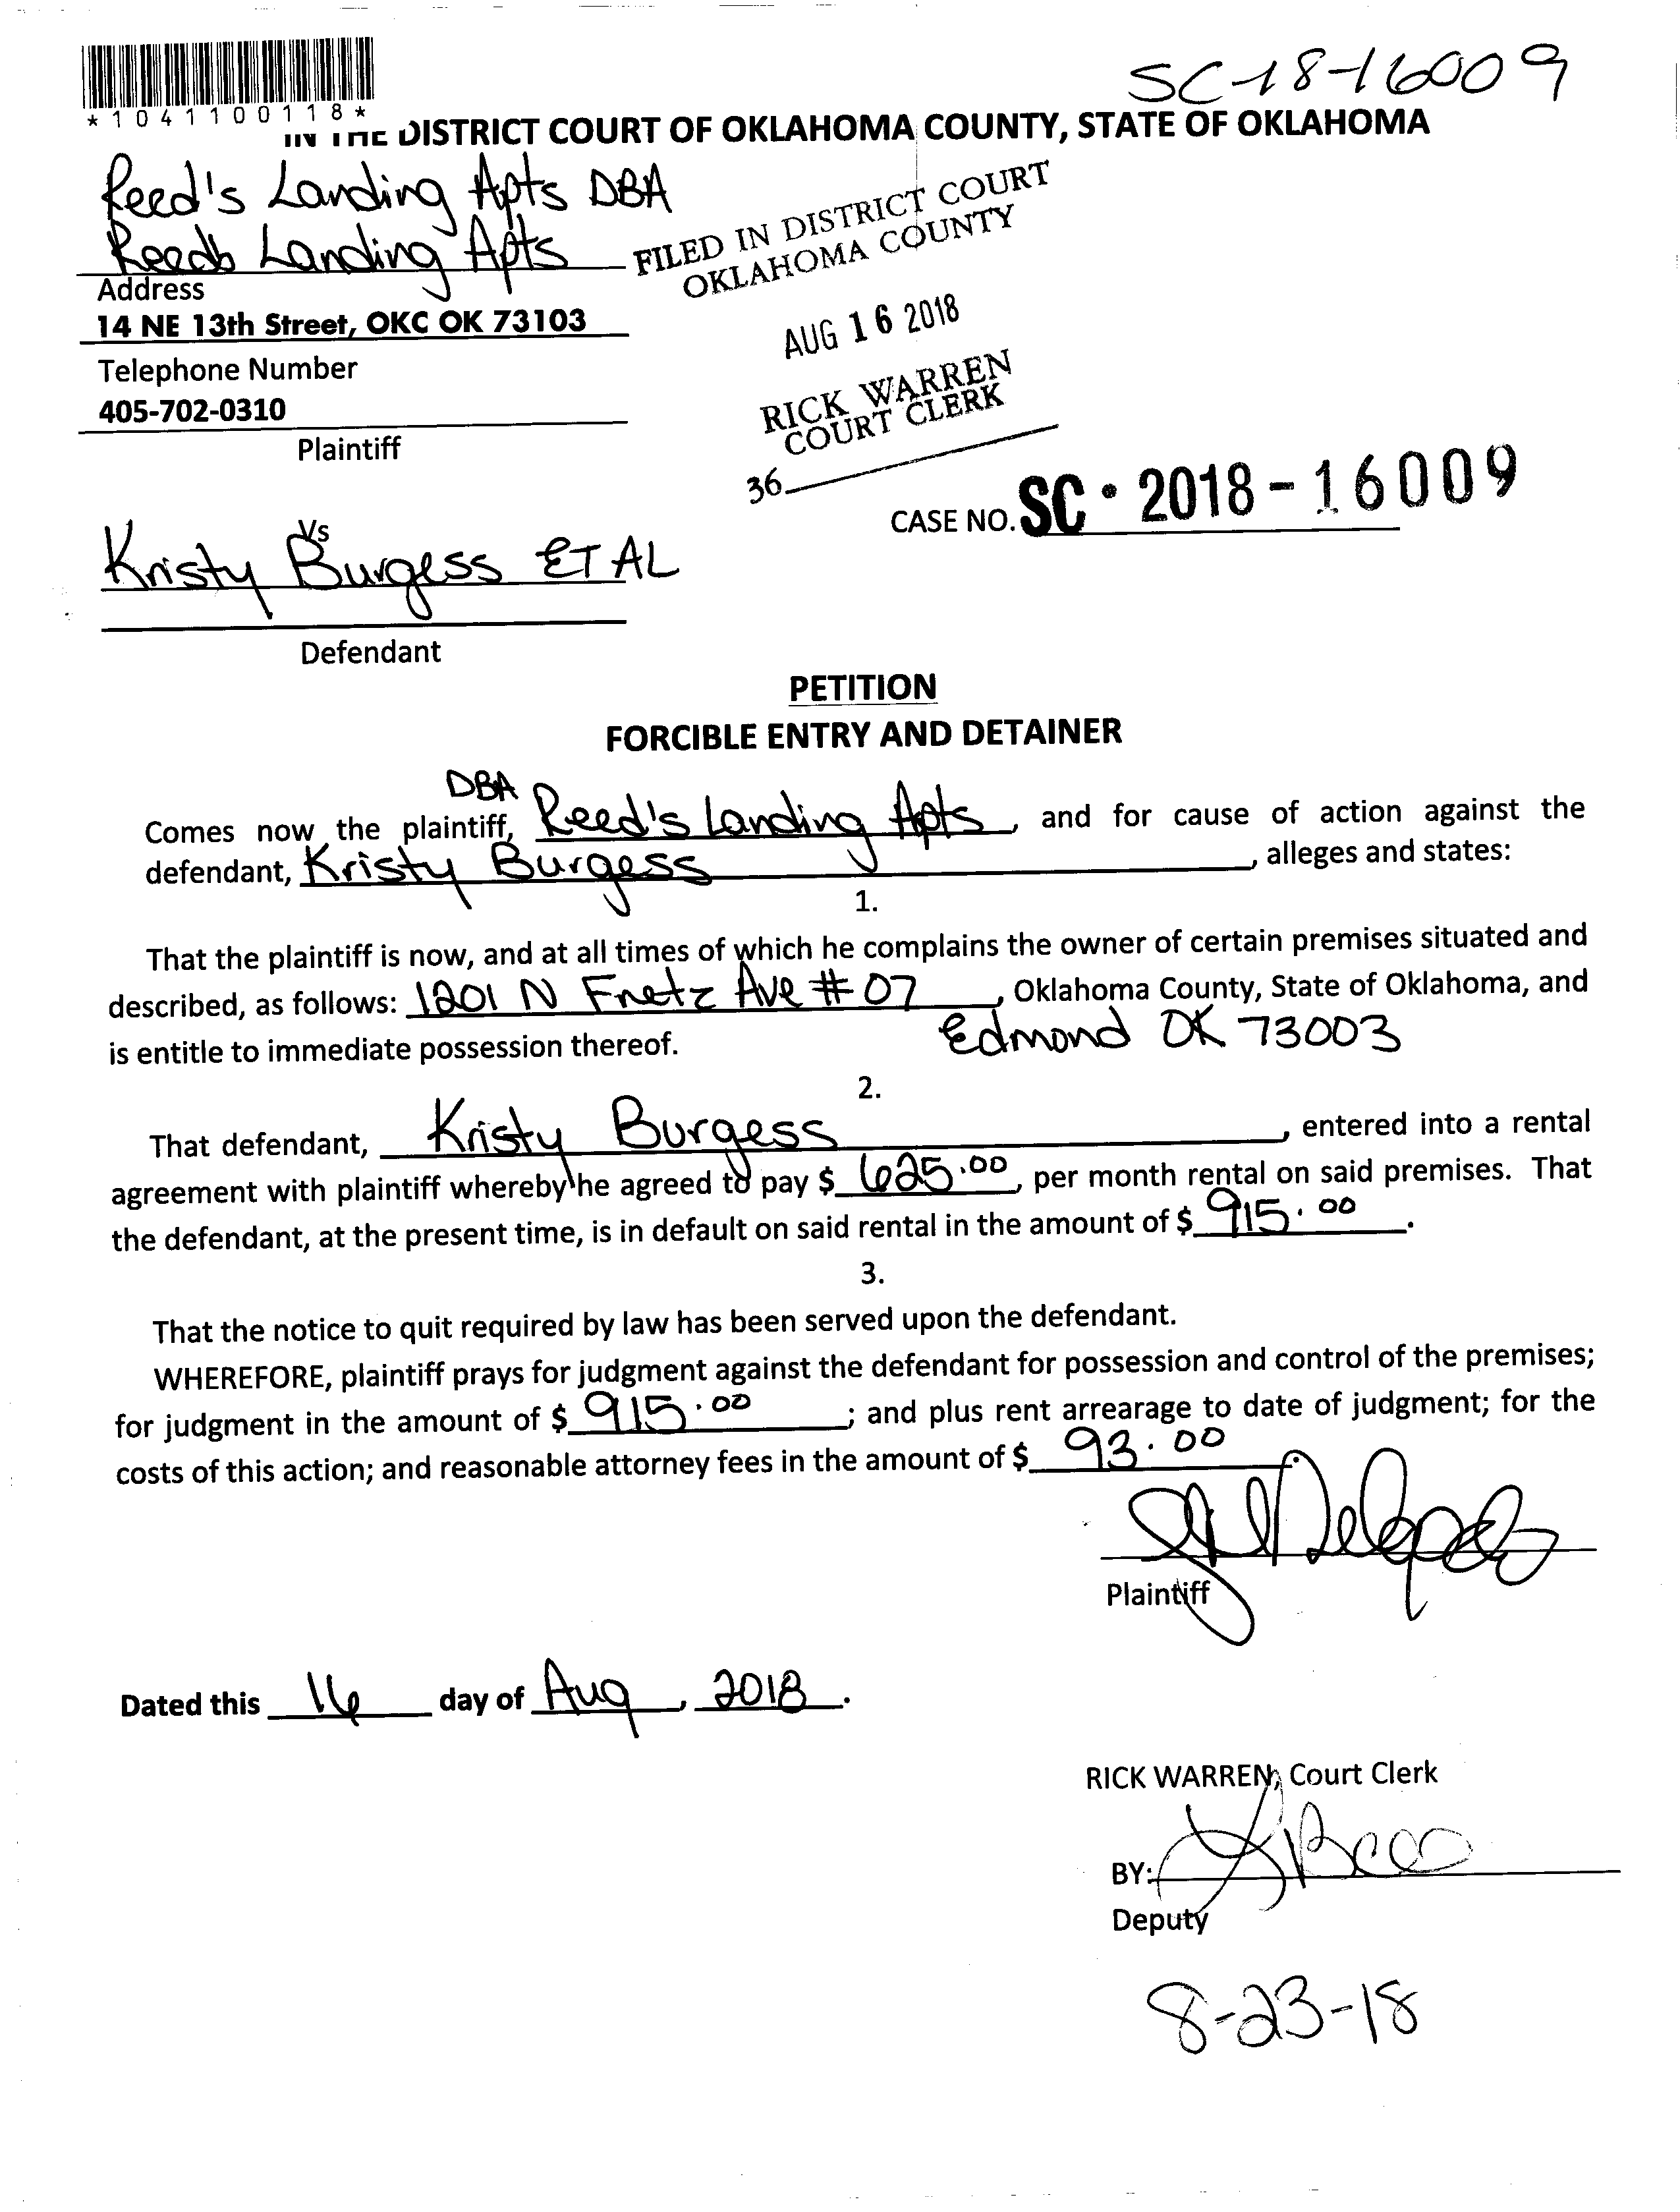 SC-18-16009
*1041100118*
IN THE DISTRICT COURT OF OKLAHOMA COUNTY, STATE OF OKLAHOMA
Reed's Landing Apts DBA
Reeds Landing Apts
FILED IN DISTRICT COURT
OKLAHOMA COUNTY
Address
14 NE 13th Street, OKC OK 73103
AUG 16 2018
Telephone Number
405-702-0310
RICK WARREN
COURT CLERK
Plaintiff
36
CASE NO. SC • 2018 - 16009
Vs
Kristy Burgess ET AL
Defendant
PETITION
FORCIBLE ENTRY AND DETAINER
DBA
Comes now the plaintiff, Reed's Landing Apts, and for cause of action against the
defendant, Kristy Burgess, alleges and states:
1.
That the plaintiff is now, and at all times of which he complains the owner of certain premises situated and
described, as follows: 1201 N Fretz Ave # 07, Oklahoma County, State of Oklahoma, and
is entitle to immediate possession thereof. Edmond OK 73003
2.
That defendant, Kristy Burgess, entered into a rental
agreement with plaintiff whereby he agreed to pay $ 625.00, per month rental on said premises. That
the defendant, at the present time, is in default on said rental in the amount of $ 915.00.
3.
That the notice to quit required by law has been served upon the defendant.
WHEREFORE, plaintiff prays for judgment against the defendant for possession and control of the premises;
for judgment in the amount of $ 915.00; and plus rent arrearage to date of judgment; for the
costs of this action; and reasonable attorney fees in the amount of $ 93.00.
Delgado
Plaintiff
Dated this 16 day of Aug, 2018.
RICK WARREN, Court Clerk
BY:
Deputy
8-23-18